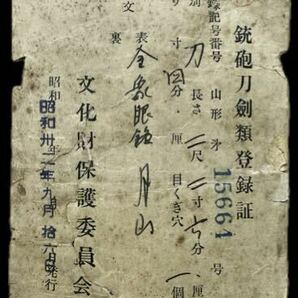 銃砲刀剣類登録証
録記号番号 山形 第 15664 号
別 刀 長さ 二尺二寸六分 厘
り 寸 四分 厘 目くぎ穴 一個
文 表 金象眼銘 月山
裏
昭和 年 月 日発行
昭和卅二年九月拾六日
文化財保護委員会